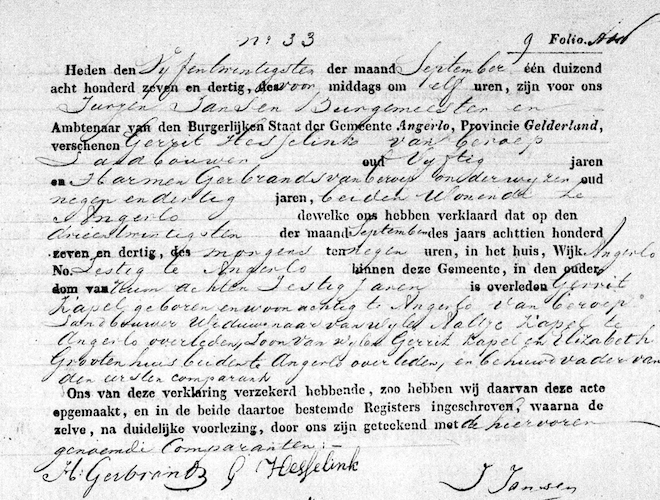 No 33 9 Folio.
Heden den Vyfentwintigsten der maand September één duizend
acht honderd zeven en dertig, des voor middags om elf uren, zijn voor ons
Jurgen Jansen Burgemeester en
Ambtenaar van den Burgerlijken Staat der Gemeente Angerlo, Provincie Gelderland,
verschenen Gerrit Hesselink van beroep
Landbouwer oud Vyftig jaren
en Harmen Gerbrands van beroep onderwyzer oud
negen en dertig jaren, beiden Wonende te
Angerlo dewelke ons hebben verklaard dat op den
drieentwintigsten der maand September des jaars achttien honderd
zeven en dertig, des morgens ten negen uren, in het huis, Wijk Angerlo
No. Zestig te Angerlo binnen deze Gemeente, in den ouder-
dom van Ruim achten Zestig Jaren is overleden Gerrit
Kapel geboren en woonachtig te Angerlo van beroep
Landbouwer Weduwenaar van wyle Kapel te
Angerlo overleden, Zoon van wylen Gerrit Kapel en Elizabeth
Grootenhuis beide te Angerlo overleden, en behuwd vader van
den eersten comparant
Ons van deze verklaring verzekerd hebbende, zoo hebben wij daarvan deze acte
opgemaakt, en in de beide daartoe bestemde Registers ingeschreven, waarna de
zelve, na duidelijke voorlezing, door ons zijn geteekend met de hiervoren
genoemde Comparanten:-
H: Gerbrands G Hesselink J Jansen